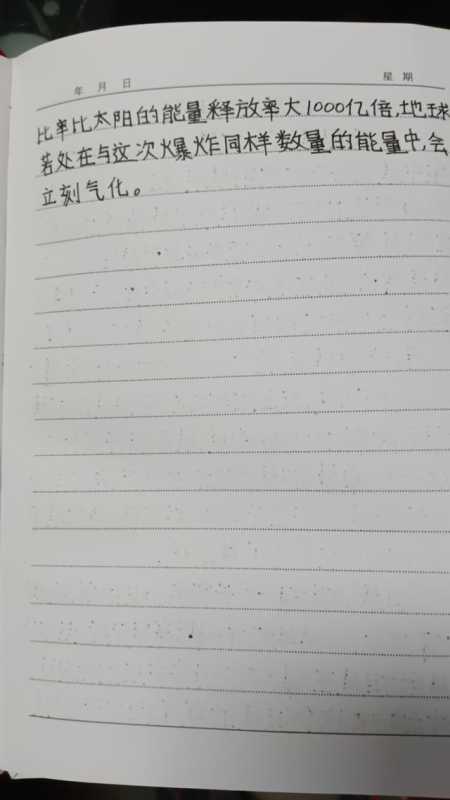 年 月 日 星 期
比率比太阳的能量释放率大1000亿倍,地球
若处在与这次爆炸同样数量的能量中,会
立刻气化。